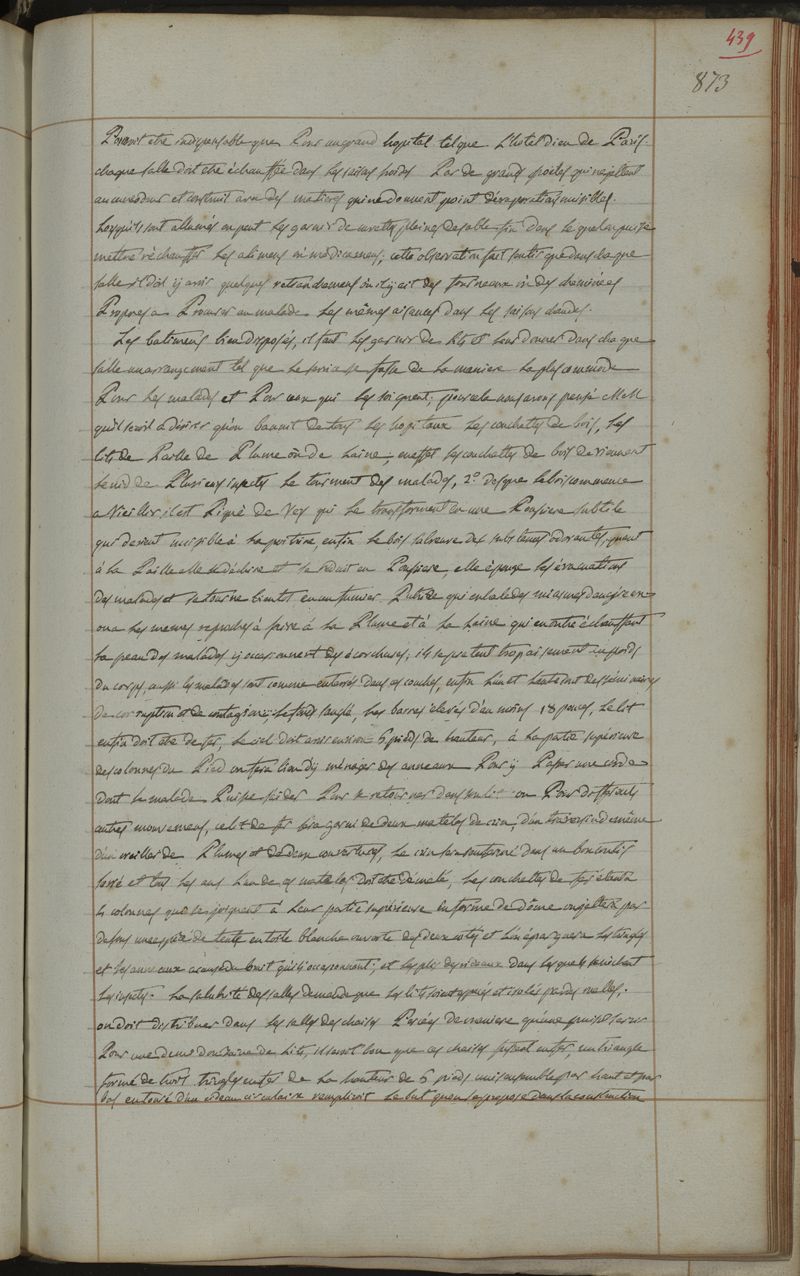 439
873
Pouroit etre indispensable que Pour un grand hopital tel que L'hotel Dieu de Paris.
chaque salle doit etre échauffée dans les saisons froides Par de grands poeles qui rejettent
aucune odeur et construit avec des matieres qui ne donnent point d'évaporations nuisibles.
Lorsqu'ils sont allumés on peut les garnir de cuvettes pleines de sable fin dans lequel on puisse
mettre réchauffer les alimens ou médicamens; cette observation fait sentir que dans chaque
salle il doit y avoir quelques retranchemens où il y ait des fourneaux ou des cheminées
Propres a Procurer au malade les mêmes aisances dans les saisons chaudes.
Les batimens bien disposés, il faut les garnir de lits et leur donner dans chaque
salle un arrangement tel que le service se fasse de la maniere la plus commode
Pour les malades et Pour ceux qui les soignent; pour cela nous avons pensé MM
qu'il seroit a désirer qu'on bannit de tous les hopitaux les couchettes de bois, les
lits de Paille de Plume ou de Laine, en effet les couchettes de bois deviennent
le nid de Plusieurs insectes le tourment des malades, 2° des que le bois commence
a vieillir il est Piqué de vers qui le transforment en une Poussiere subtile
qui devient nuisible à la poitrine, enfin le bois s'abreuve des substances odorantes, quant
à la Paille elle se déchire et se réduit en Poussiere, elle éponge les évacuations
des malades et se tourne bientot en un fumier Putride qui exhale des miasmes dangereux
on a les memes reproches à faire à la Plume et à la Laine qui en outre échauffant
la peau des malades y occasionnent des écorchures; ils se pretent trop aisement au poids
du corps, aussi les malades sont comme enterrés dans ces couches, enfin l'un et l'autre sont des séminaires
de corruption et de contagion; le fond sanglé, les barres élevés d'au moins 18 pouces, le lit
enfin doit etre de fer, le ciel doit avoir environ 6 pieds de hauteur, à la partie supérieure
des colonnes du Pied on fera bien d'y ménager des anneaux Pour y Passer une corde
dont le malade Puisse s'aider Pour se retourner dans son lit ou Pour differents
autres mouvemens, ce lit de fer sera garni de deux matelas de crin, d'un traversin de même
d'un oreiller de Plumes et de deux couvertures, le crin sera renfermé dans un bon coutil
serré et tous les ans l'un de ces matelas doit etre démelé, les couchettes de fer étant a
4 colonnes qui se joignent à leur partie supérieure en forme de dôme on jettera par
dessus une espèce de tente en toile blanche ouverte des deux cotés et l'on épargnera les tringles
et les anneaux a cause du bruit qu'ils occasionnent; et les plis des rideaux dans lesquels se nichent
les insectes. La salubrité des salles demande que les lits soient espacés et isolés par des ruelles.
on doit distribuer dans les salles des chaises Percées de maniere qu'une puisse servir
Pour une demi douzaine de lits, il seroit bon que ces chaises fussent en fer, un triangle
formé de trois tringles en fer de la hauteur de 6 pieds unis ensemble par haut et par
bas entouré d'un rideau circulaire rempliroit le but qu'on se propose dans la construction